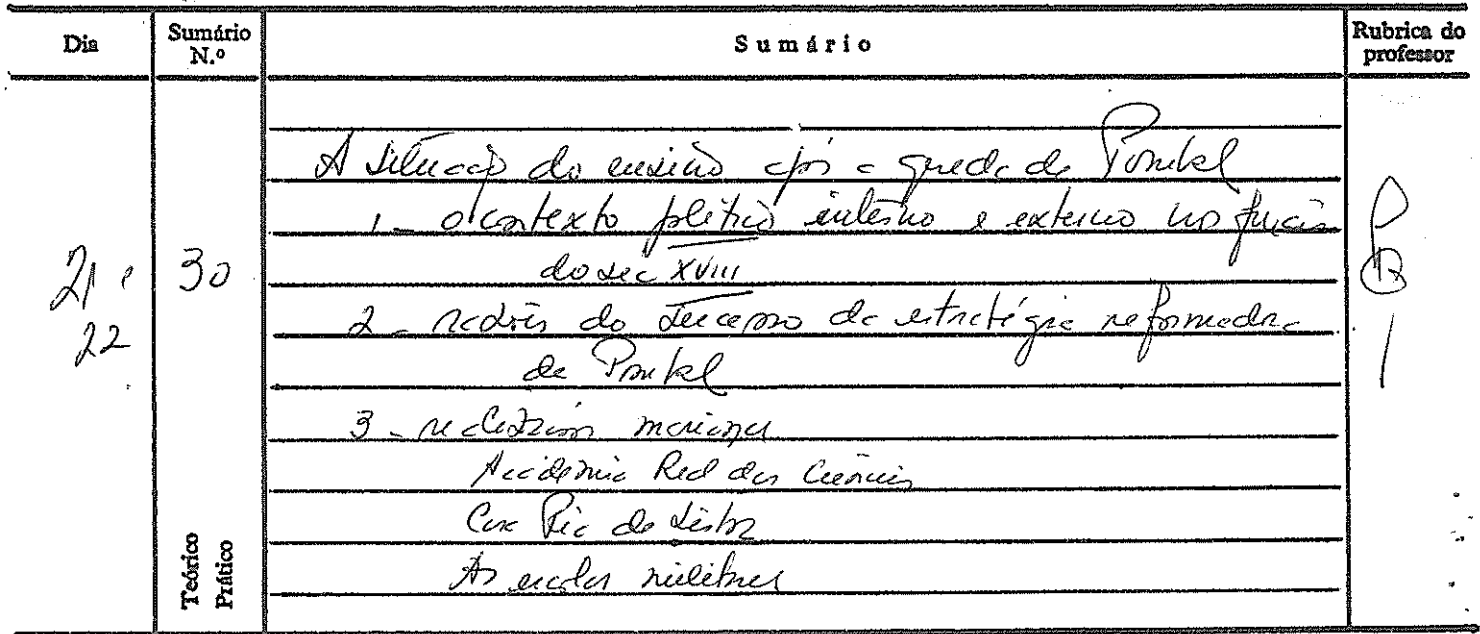 Dia
Sumário N.º
Sumário
Rubrica do professor
21 e 22
30
Teórico Prático
A situação do ensino após a queda de Pombal
1 - o contexto político interno e externo nos finais
do sec XVIII
2 - razões do sucesso da estratégia reformadora
de Pombal
3 - realizações marianas
Academia Real das Ciências
Casa Pia de Lisboa
As escolas militares